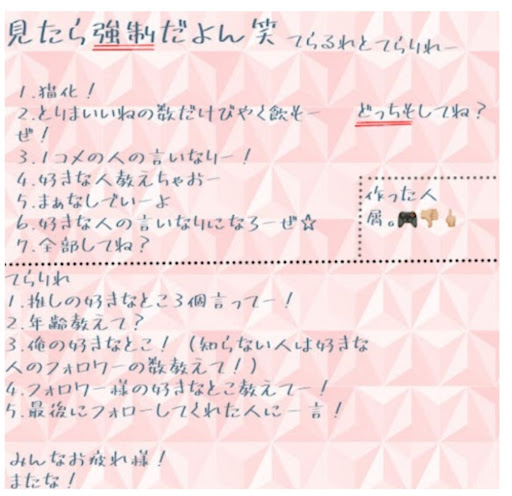 見たら強制だよん笑 てらるれとてらりれー
1.猫化！
2.とりまいいねの数だけびやく飲もー
ぜ！
どっちもしてね？
3.1コメの人の言いなりー！
4.好きな人教えちゃおー
5.まぁなしでいーよ
6.好きな人の言いなりになろーぜ☆
7.全部してね？
作った人
屑。🎮👎🏼🖕🏼
てらりれ
1.推しの好きなとこ3個言ってー！
2.年齢教えて？
3.俺の好きなとこ！（知らない人は好きな
人のフォロワーの数教えて！）
4.フォロワー様の好きなとこ教えてー！
5.最後にフォローしてくれた人に一言！
みんなお疲れ様！
またな！